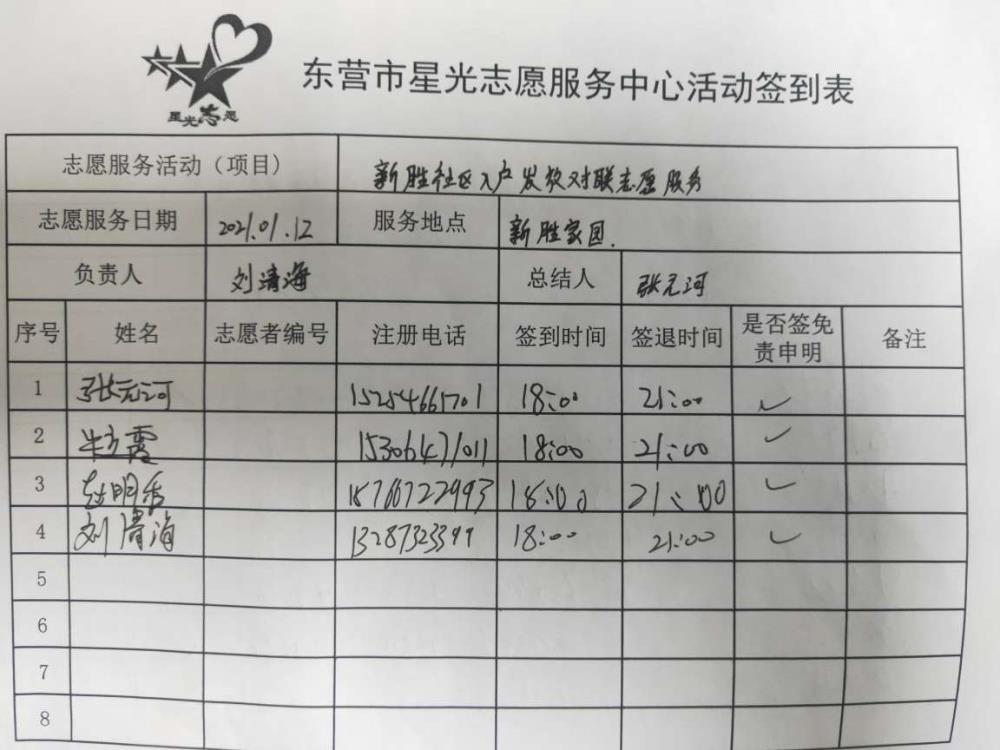 东营市星光志愿服务中心活动签到表
星光志愿
志愿服务活动（项目） 新胜社区入户发放对联志愿服务
志愿服务日期 2021.01.12 服务地点 新胜家园.
负责人 刘清海 总结人 张元河
序号 姓名 志愿者编号 注册电话 签到时间 签退时间 是否签免责申明 备注
1 张元河 15254661701 18:00 21:00 ✓
2 牛立霞 15306471011 18:00 21:00 ✓
3 赵明秀 18766722993 18:00 21:00 ✓
4 刘清海 13287323399 18:00 21:00 ✓
5
6
7
8